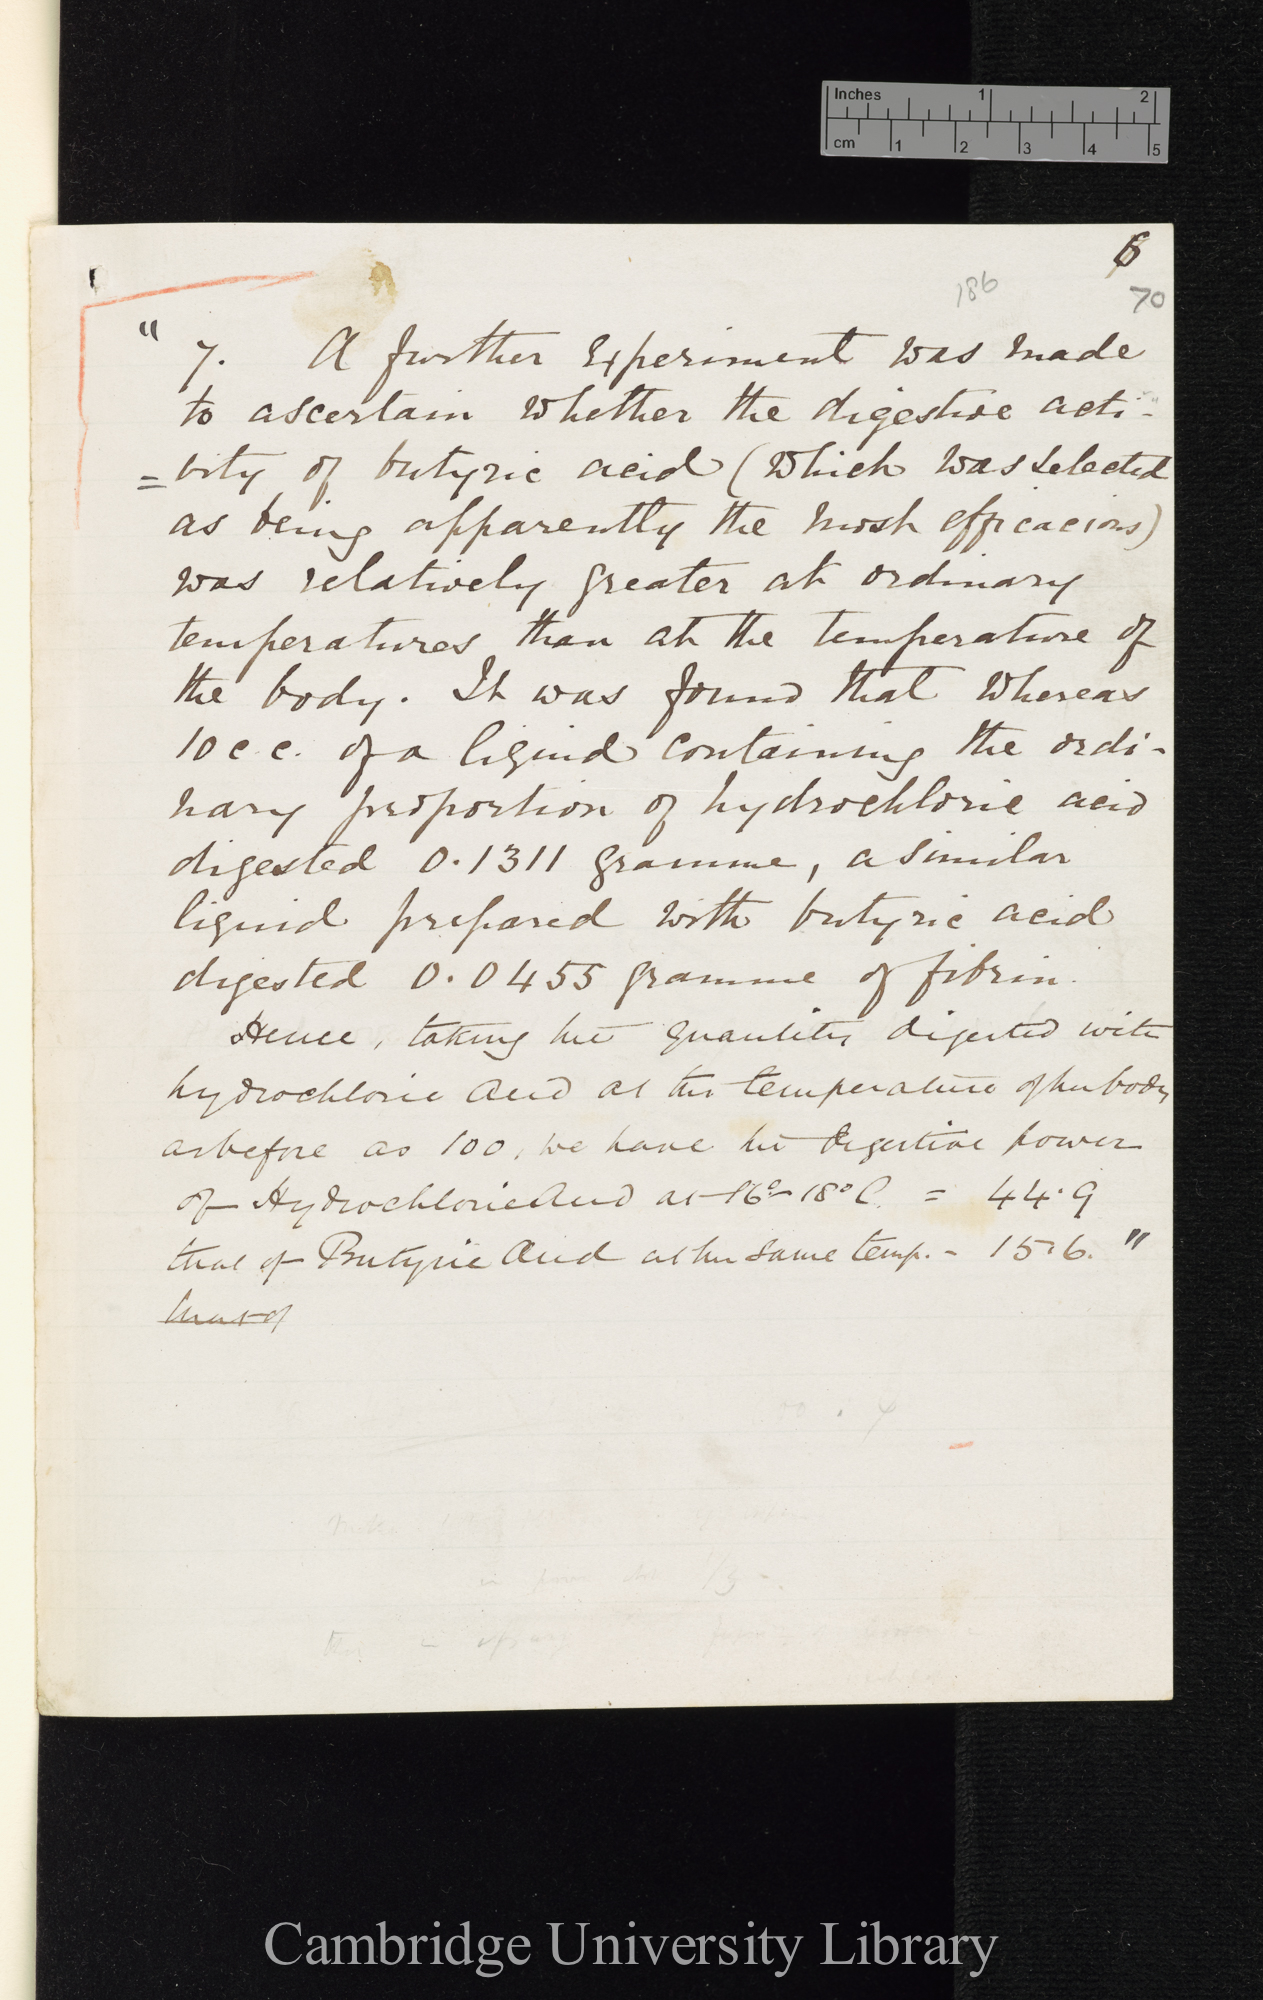 Inches 1 2
cm 1 2 3 4 5
6
186
70
" 7. A further Experiment was made
to ascertain whether the digestive acti-
=vity of butyric acid (which was selected
as being apparently the most efficacious)
was relatively greater at ordinary
temperatures than at the temperature of
the body. It was found that whereas
10 c.c. of a liquid containing the ordi-
nary proportion of hydrochloric acid
digested 0.1311 gramme, a similar
liquid prepared with butyric acid
digested 0.0455 gramme of fibrin.
Hence, taking the quantity digested with
hydrochloric acid at the temperature of the body
as before as 100, we have the digestive power
of Hydrochloric Acid at 16°-18° C. = 44.9
that of Butyric Acid at the same temp. - 15.6."
that of
Cambridge University Library